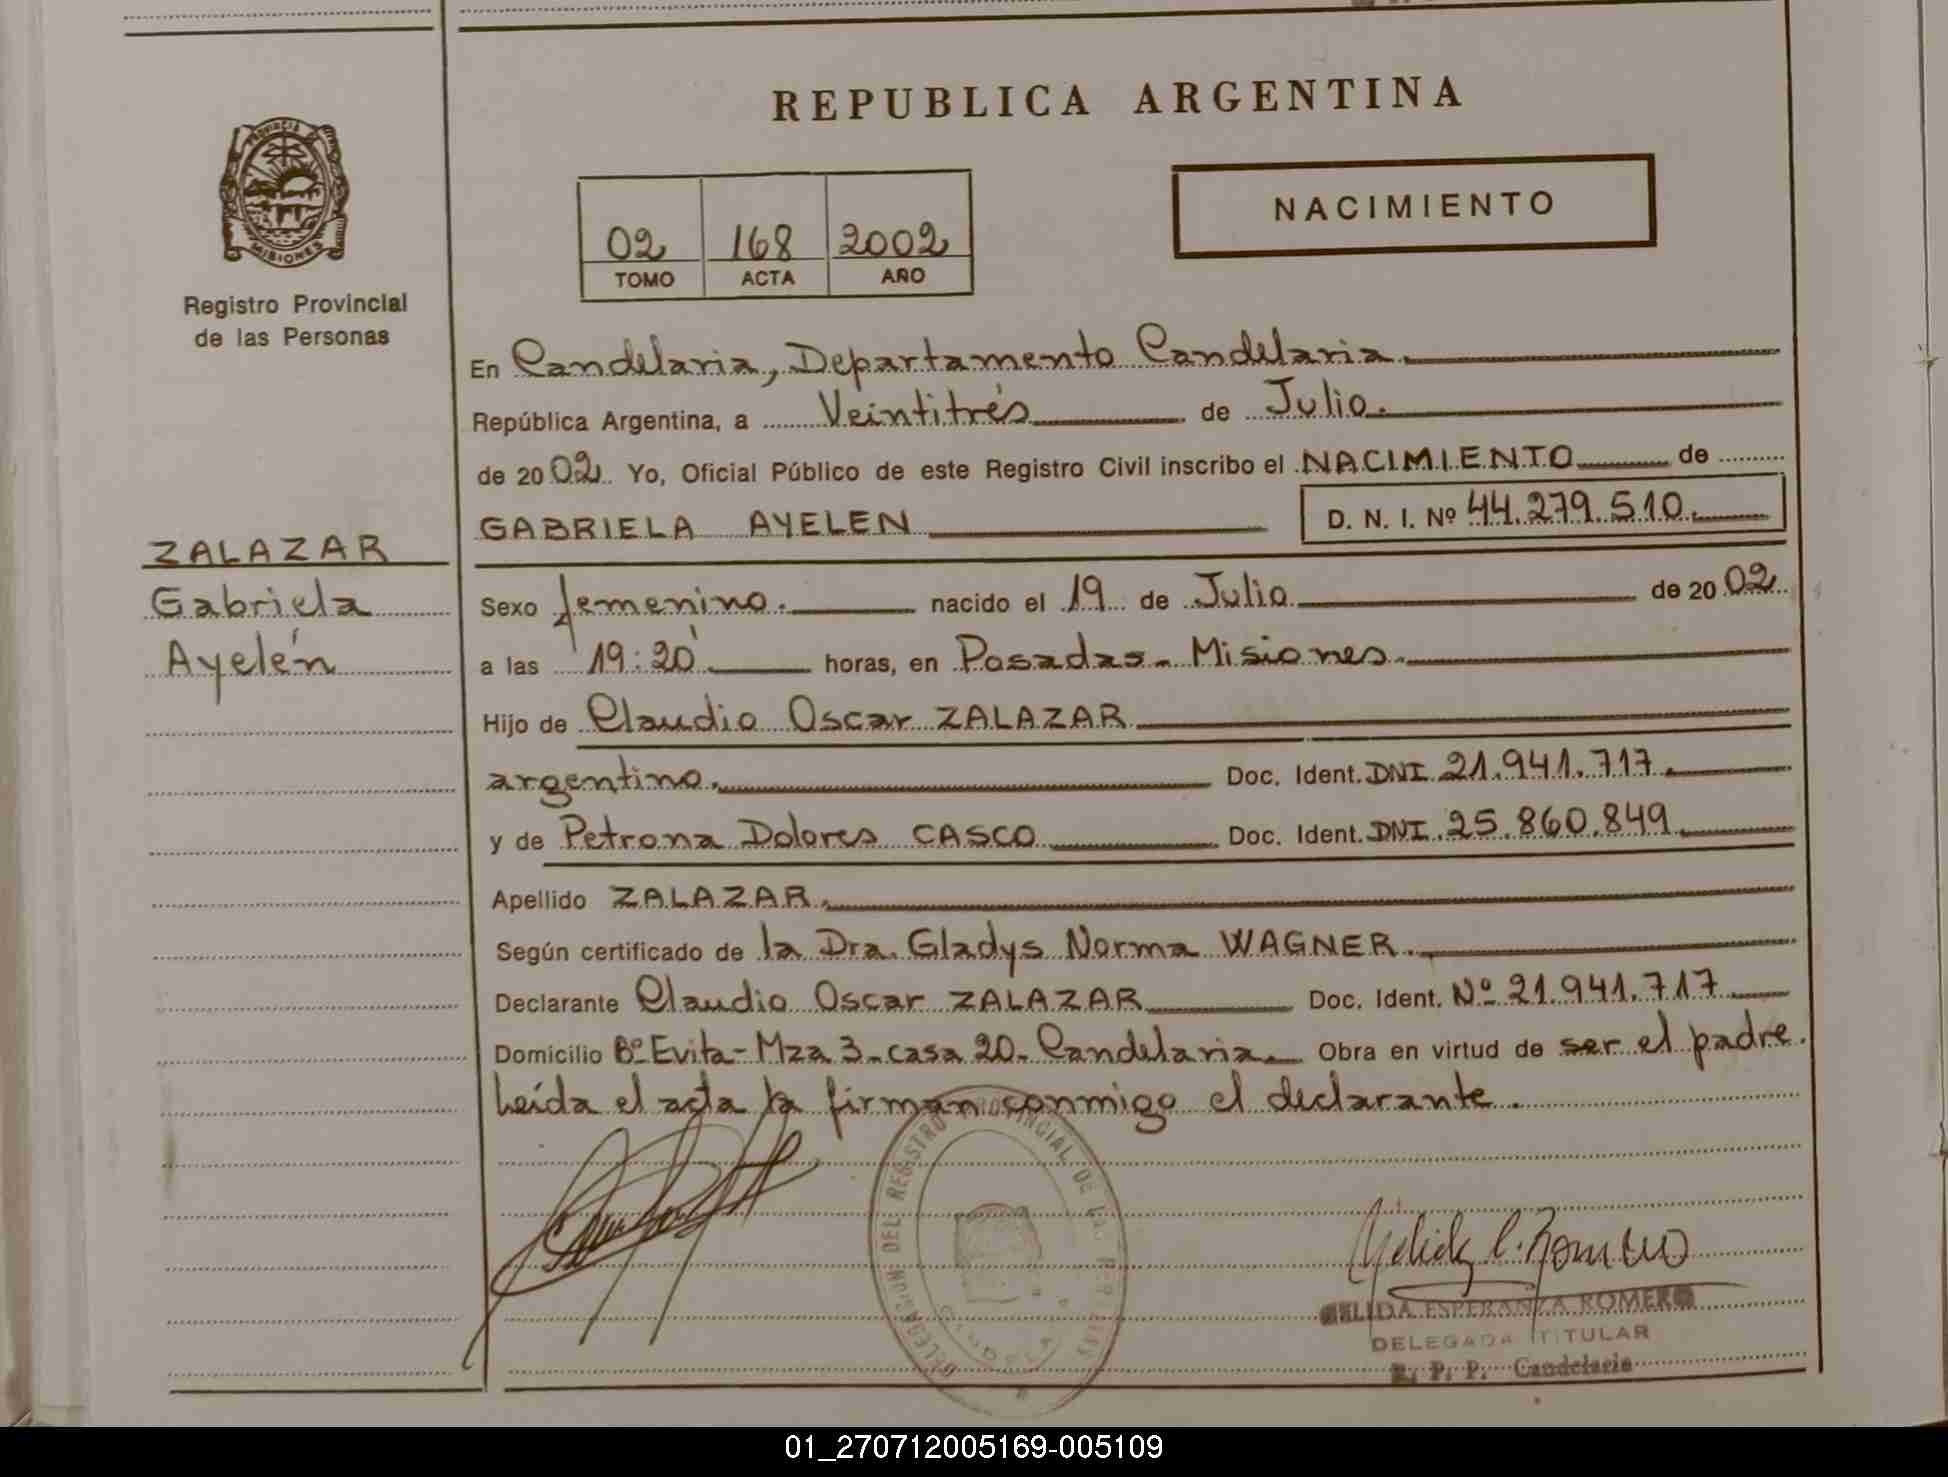 REPUBLICA ARGENTINA
PROVINCIA DE
MISIONES
Registro Provincial
de las Personas
02 168 2002
TOMO ACTA AÑO
NACIMIENTO
En Candelaria, Departamento Candelaria
República Argentina, a Veintitrés de Julio.
de 2002 Yo, Oficial Público de este Registro Civil inscribo el NACIMIENTO de
GABRIELA AYELEN D. N. I. Nº 44.279.510.
ZALAZAR
Gabriela
Ayelén
Sexo femenino. nacido el 19 de Julio de 2002
a las 19:20 horas, en Posadas- Misiones.
Hijo de Claudio Oscar ZALAZAR
argentino. Doc. Ident. DNI 21.941.717.
y de Petrona Dolores CASCO Doc. Ident. DNI 25.860.849
Apellido ZALAZAR.
Según certificado de la Dra. Gladys Norma WAGNER.
Declarante Claudio Oscar ZALAZAR Doc. Ident. Nº 21.941.717
Domicilio Bº Evita- Mza 3- casa 20- Candelaria. Obra en virtud de ser el padre.
Leída el acta la firman conmigo el declarante.
DELEGACION DEL REGISTRO PROVINCIAL DE LAS
ESPERANZA ROMERO
DELEGADA TITULAR
R. P. P. Candelaria
01_270712005169-005109